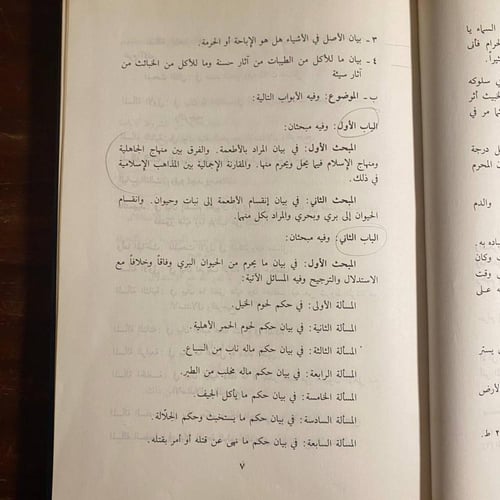 ٣ - بيان الأصل في الأشياء هل هو الإباحة أو الحرمة.
٤ - بيان ما للأكل من الطيبات من آثار حسنة وما للأكل من الخبائث من
آثار سيئة
ب - الموضوع: وفيه الأبواب التالية:
الباب الأول: وفيه مبحثان:
المبحث الأول: في بيان المراد بالأطعمة. والفرق بين منهاج الجاهلية
ومنهاج الإسلام فيما يحل ويحرم منها. والمقارنة الإجمالية بين المذاهب الإسلامية
في ذلك.
المبحث الثاني: في بيان إنقسام الأطعمة إلى نبات وحيوان. وانقسام
الحيوان إلى بري وبحري والمراد بكل منهما.
الباب الثاني: وفيه مبحثان:
المبحث الأول: في بيان ما يحرم من الحيوان البري وفاقاً وخلافاً مع
الاستدلال والترجيح وفيه المسائل الآتية:
المسألة الأولى: في حكم لحوم الخيل.
المسألة الثانية: في بيان حكم لحوم الحمر الأهلية.
المسألة الثالثة: في بيان حكم ماله ناب من السباع.
المسألة الرابعة: في بيان حكم ماله مخلب من الطير.
المسألة الخامسة: في بيان حكم ما يأكل الجيف.
المسألة السادسة: في بيان حكم ما يستخبث وحكم الجلّالة.
المسألة السابعة: في بيان حكم ما نهى عن قتله أو أمر بقتله.
٧
السماء يا
الحرام فأنى
ي سلوكه
لخبيث أثر
ما مر في
ل درجة
ن المحرم
والدم
ساده به.
وكان
وقت
ه على
يستر
الأرض
٢ ط.